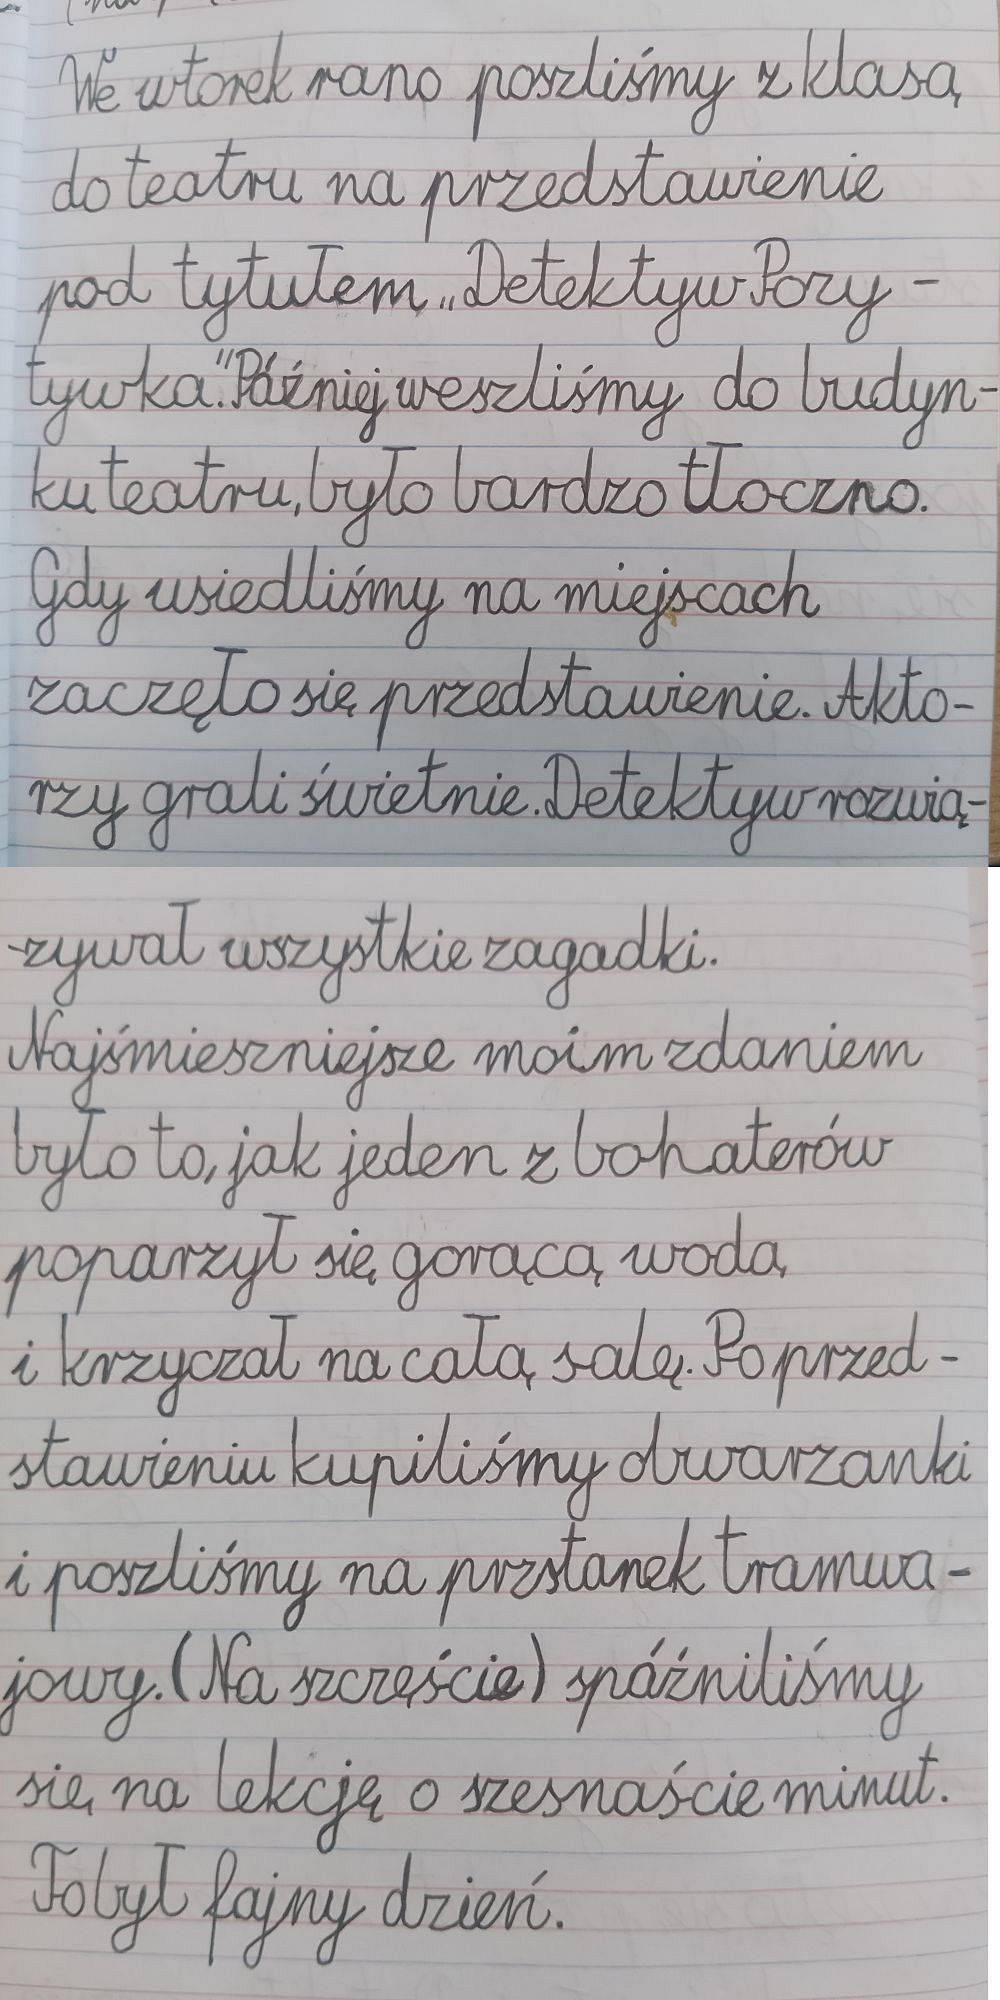 We wtorek rano poszliśmy z klasą
do teatru na przedstawienie
pod tytułem „Detektyw Pozy-
tywka." Póżniej weszliśmy do budyn-
ku teatru, było bardzo tłoczno.
Gdy usiedliśmy na miejscach
zaczęło się przedstawienie. Akto-
rzy grali świetnie. Detektyw rozwią-
-zywał wszystkie zagadki.
Najśmieszniejsze moim zdaniem
było to, jak jeden z bohaterów
poparzył się gorącą wodą
i krzyczał na całą salę. Po przed-
stawieniu kupiliśmy obwarzanki
i poszliśmy na przstanek tramwa-
jowy. (Na szczęście) spóźniliśmy
się na lekcję o szesnaście minut.
To był fajny dzień.